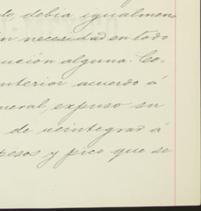 debia igualmen
necesidad en todo
ución alguna. Co.
nterior acuerdo á
neral, expuso su
de reintegrar á
pesos y pico que se